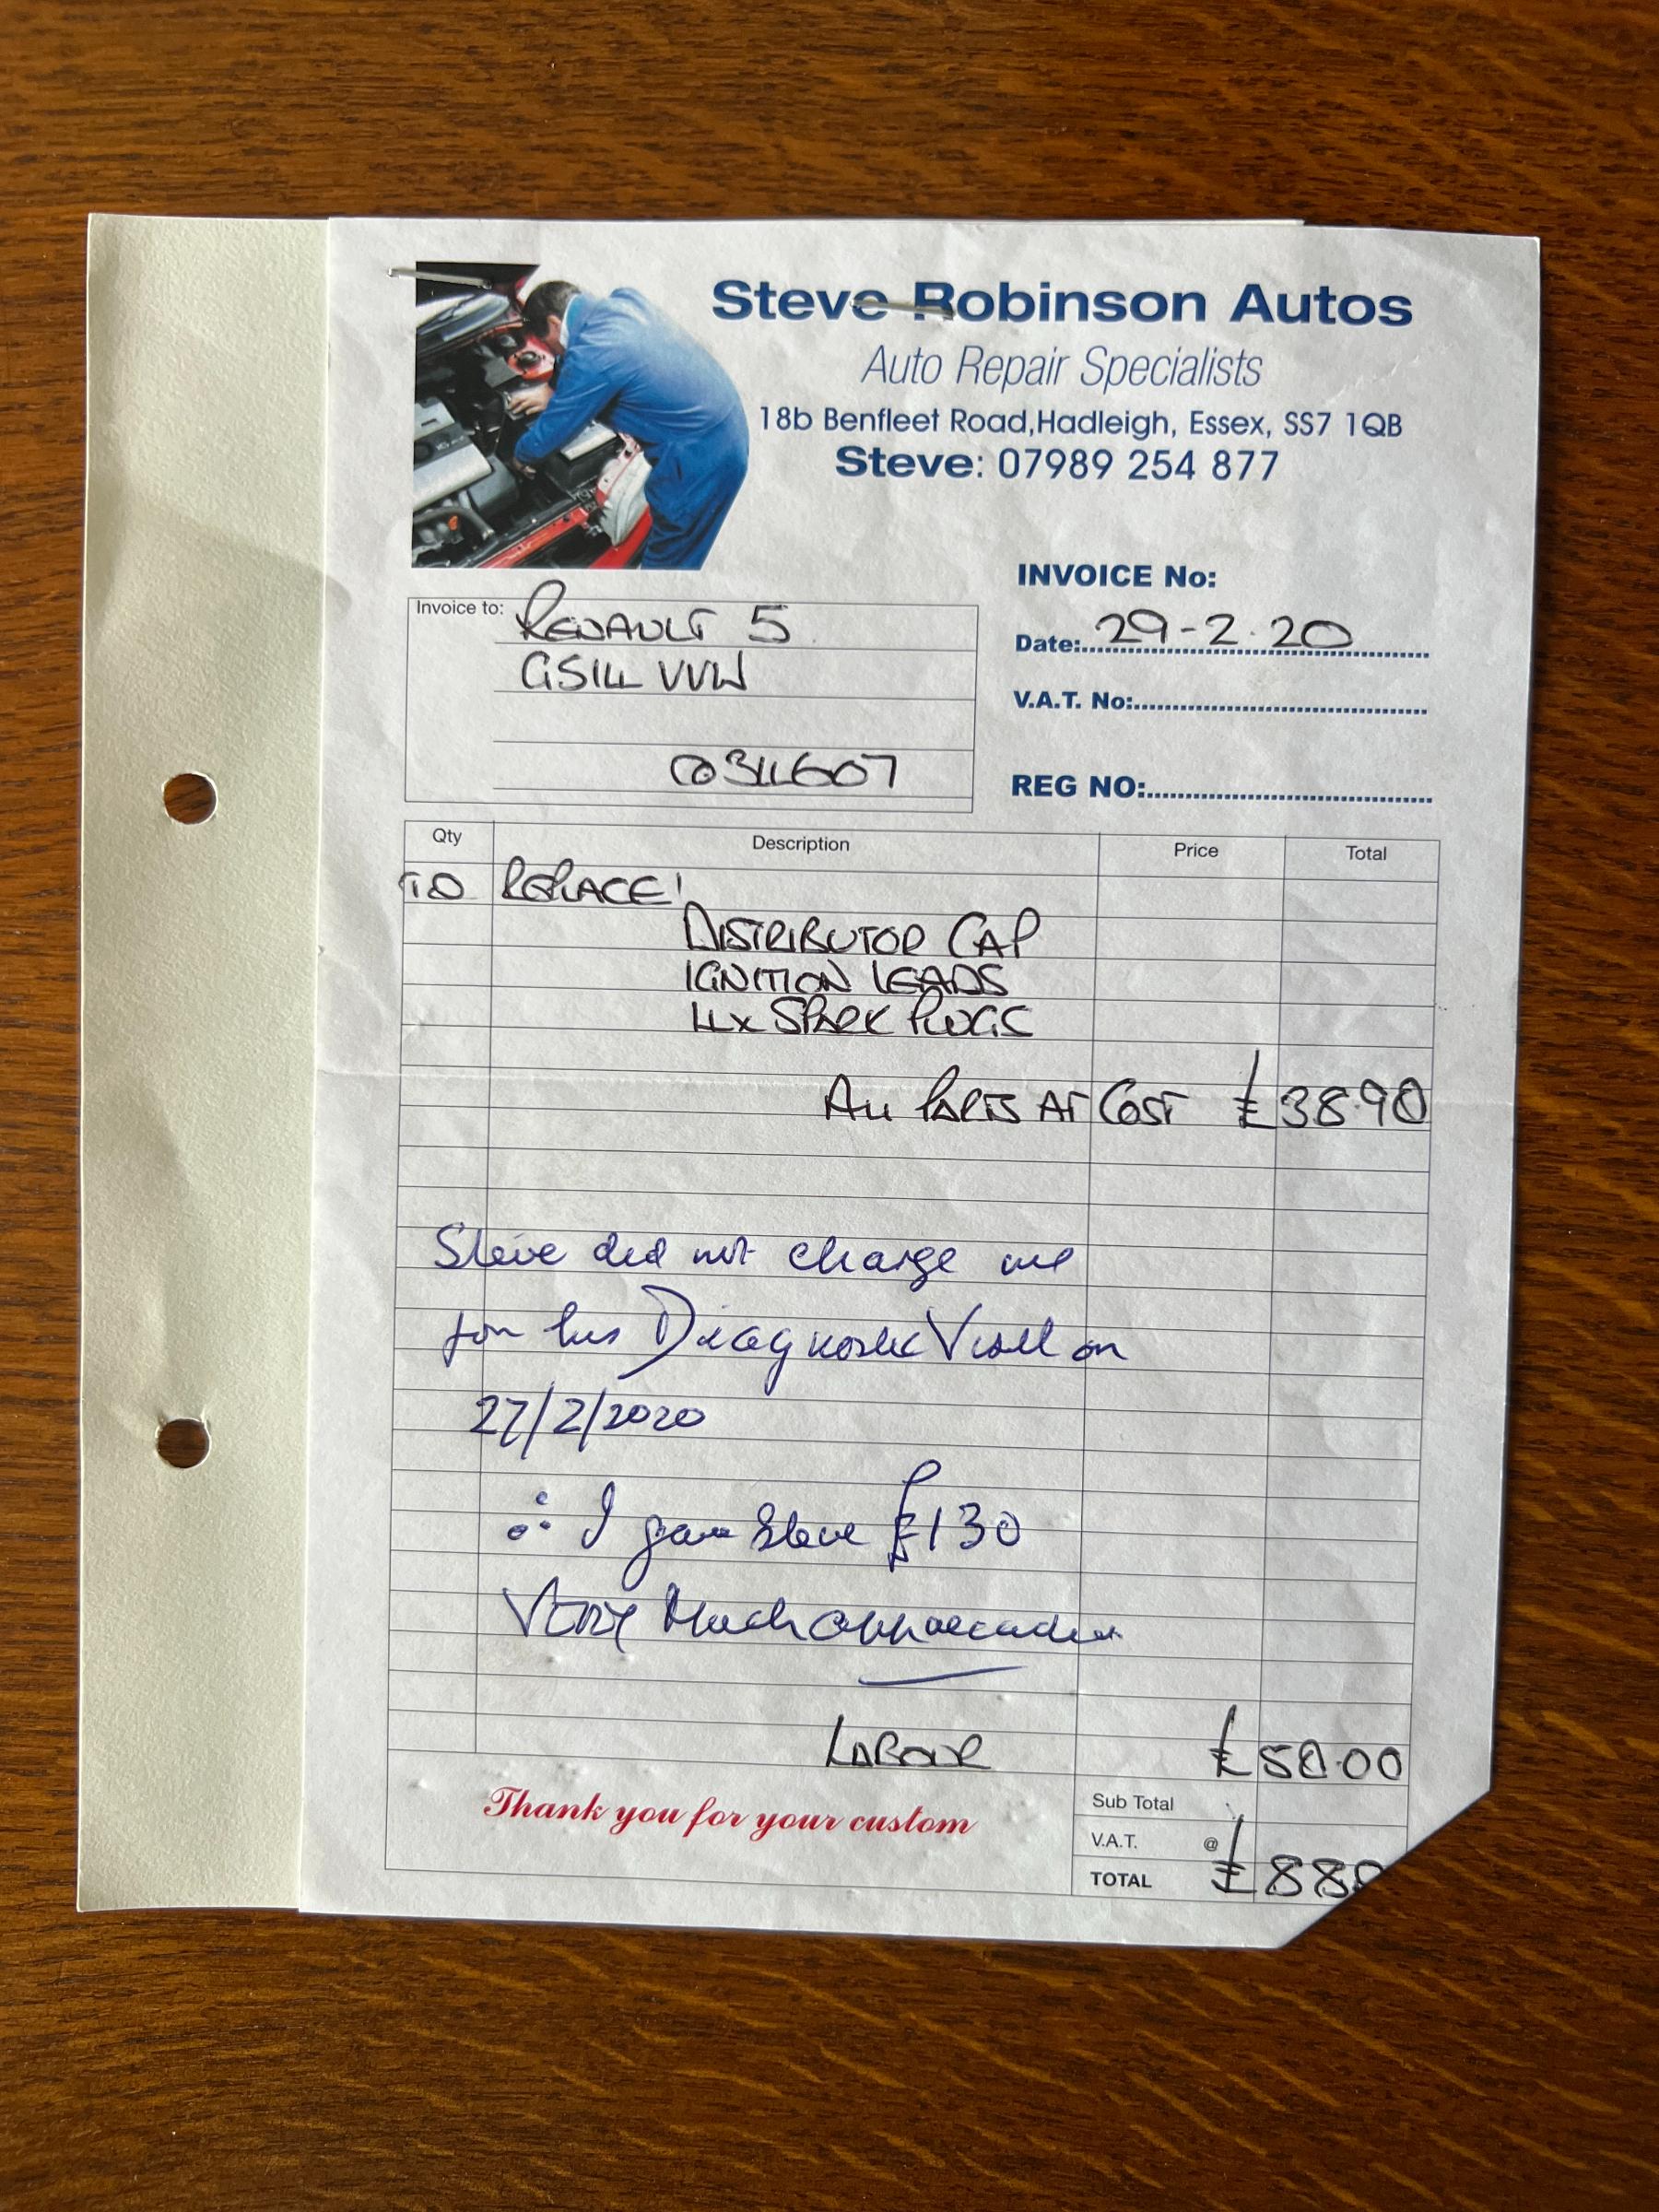 Steve Robinson Autos
Auto Repair Specialists
18b Benfleet Road,Hadleigh, Essex, SS7 1QB
Steve: 07989 254 877
INVOICE No:
Invoice to: RENAULT 5
Date: 29-2.20
G514 VVW
V.A.T. No:
034607
REG NO:
Qty Description Price Total
TO REPLACE!
DISTRIBUTOR CAP
IGNITION LEADS
4x SPARK PLUGS
ALL PARTS AT COST £38.90
Steve did not charge me
for his Diagnostic Visit on
27/2/2020
∴ I gave Steve £130
Very Much appreciated
LABOUR £50.00
Thank you for your custom
Sub Total
V.A.T. @
TOTAL £88